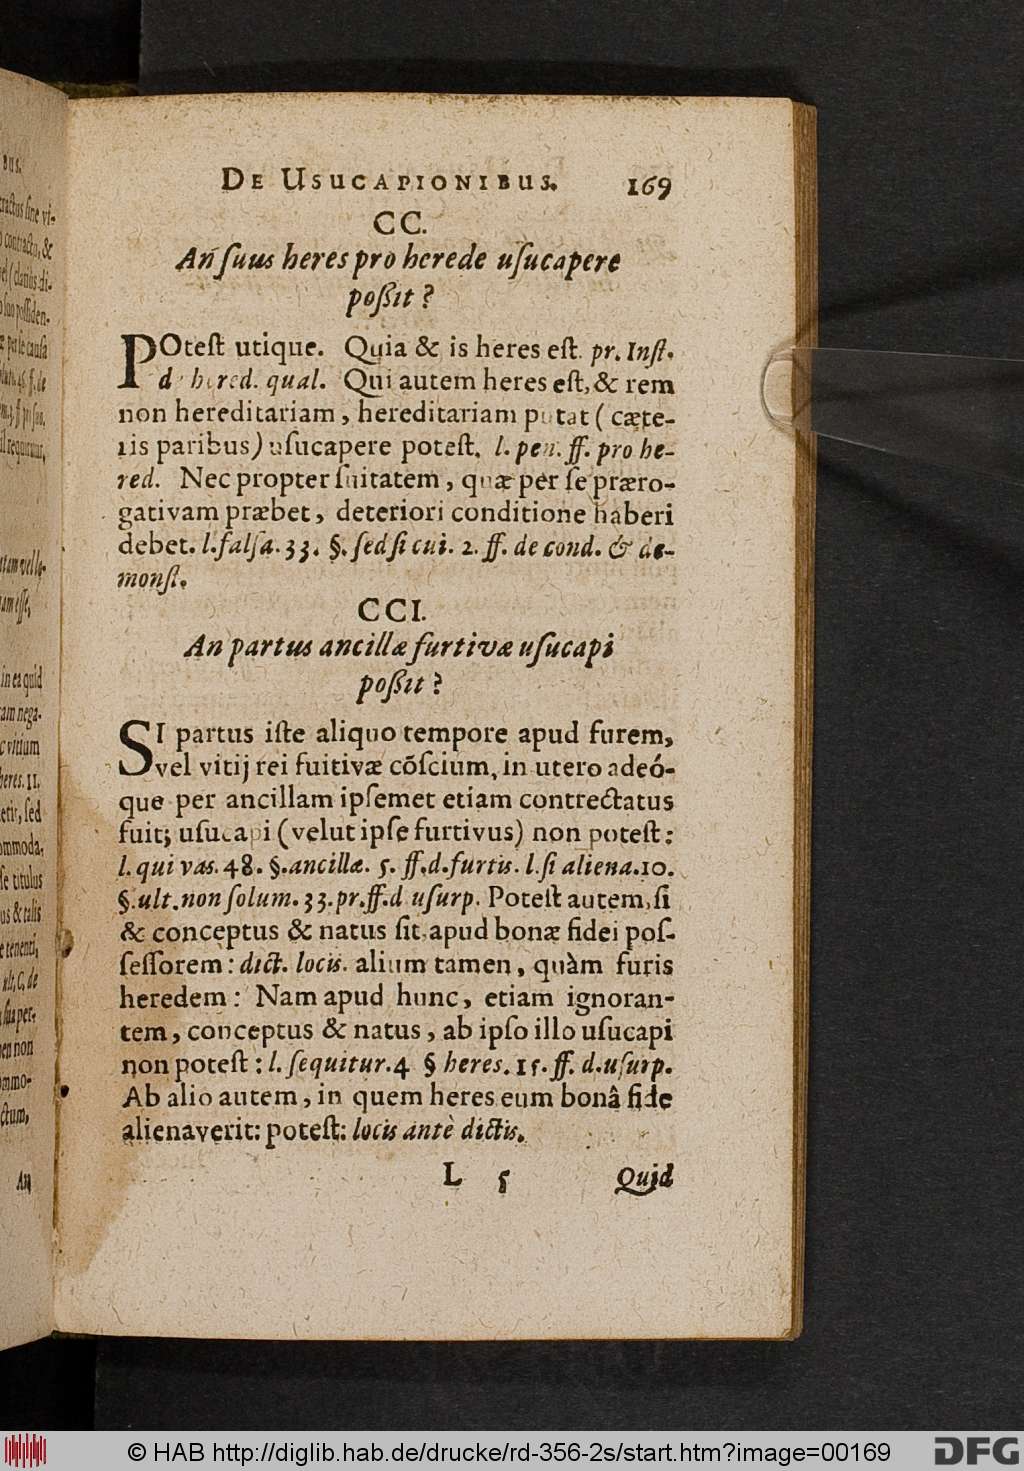 DE USUCAPIONIBUS. 169
CC.
An ſuus heres pro herede uſucapere
poßit?
POteſt utique. Quia & is heres eſt. pr. Inſt.
d' hered. qual. Qui autem heres eſt, & rem
non hereditariam, hereditariam putat (cæte-
ris paribus) uſucapere poteſt. l. pen. ff. pro he-
red. Nec propter ſuitatem, quæ per ſe præro-
gativam præbet, deteriori conditione haberi
debet. l. falſa. 33. §. ſed ſi cui. 2. ff. de cond. & de-
monſt.
CCI.
An partus ancillæ furtivæ uſucapi
poßit?
SI partus iſte aliquo tempore apud furem,
vel vitij rei furtivæ cõſcium, in utero adeó-
que per ancillam ipſemet etiam contrectatus
fuit; uſucapi (velut ipſe furtivus) non poteſt:
l. qui vas. 48. §. ancillæ. 5. ff. d. furtis. l. ſi aliena. 10.
§. ult. non ſolum. 33. pr. ff. d uſurp. Poteſt autem, ſi
& conceptus & natus ſit, apud bonæ fidei poſ-
ſeſſorem: dict. locis. alium tamen, quàm furis
heredem: Nam apud hunc, etiam ignoran-
tem, conceptus & natus, ab ipſo illo uſucapi
non poteſt: l. ſequitur. 4 § heres. 15. ff. d. uſurp.
Ab alio autem, in quem heres eum bonâ fide
alienaverit: poteſt: locis antè dictis.
L 5 Quid
© HAB http://diglib.hab.de/drucke/rd-356-2s/start.htm?image=00169
DFG